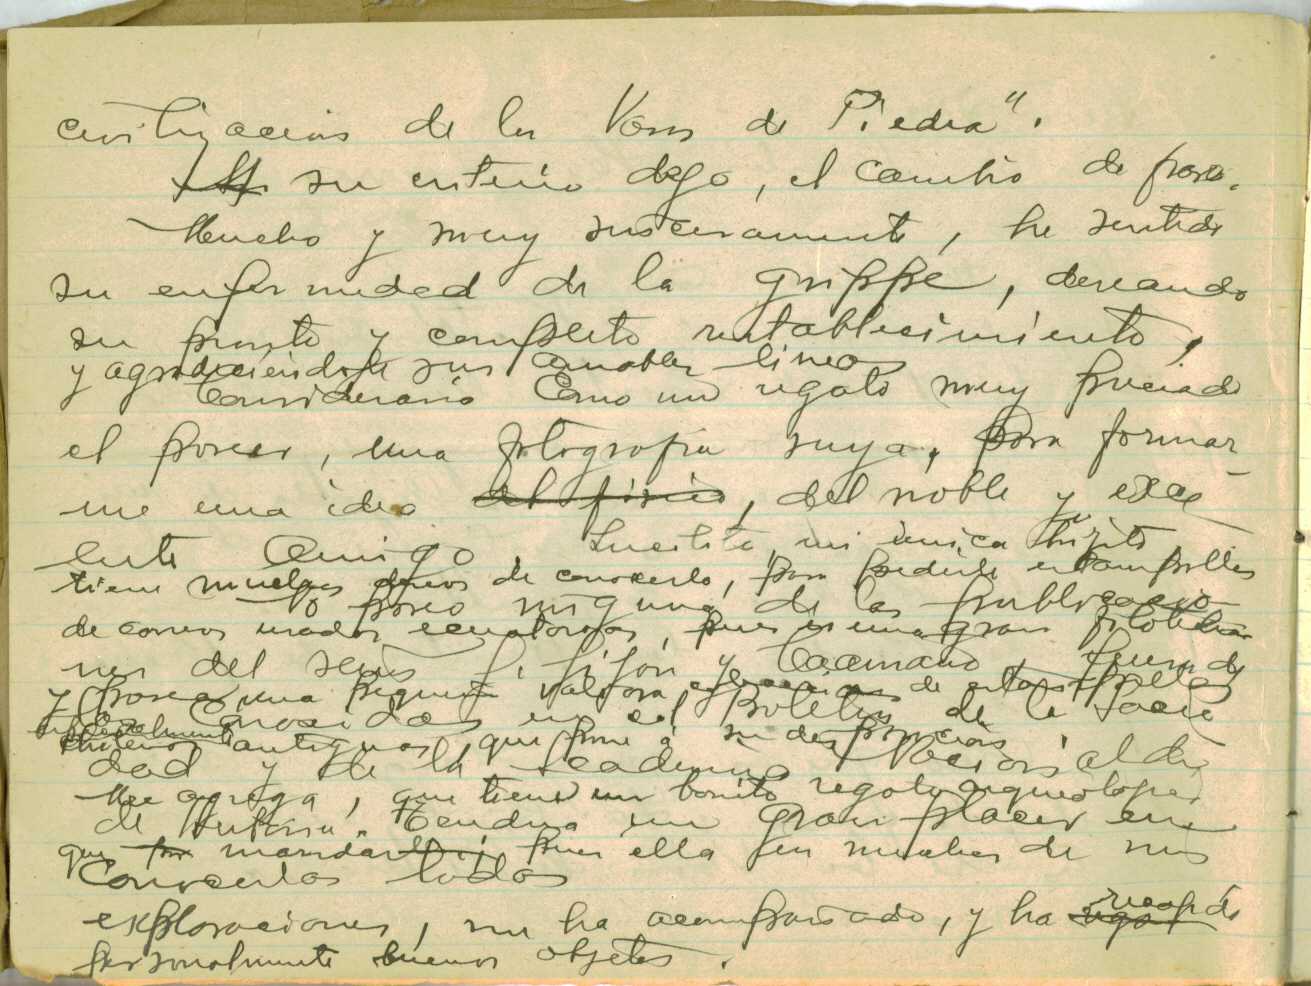 civilizacion de los Vasos de Piedra".
su criterio dejo, el cambio de frase.
Mucho y muy sinceramente, he sentido
su enfermedad de la grippe, deseando
su pronto y completo restablecimiento,
y agradeciendole sus amables lineas
Consideraria como un regalo muy preciado
el poseer, una fotografia suya, para formar-
me una idea del fisico, del noble y exce
lente amigo
Lucilita, mi unica hijita,
tiene muchos deseos de conocerlo, para pedirle estampillas
Yo poseo ninguna de las publicacio
de correos usadas ecuatorianas, pues es una gran
nes del señor J. Jijón y Caamaño, fuera de
y posee una pequeña valiosa de estampillas
las conocidas en el Boletin de la Socie
chilenas antiguas, que pone a su disposicion
dad y de la Academia Nacional de
Me agrega, que tiene un bonito regalo arqueologico
de Historia. Tendria un gran placer en
que mandarle pues ella en muchas de mis
conocerlas todas
exploraciones, me ha acompañado, y ha recogido
personalmente buenos objetos.